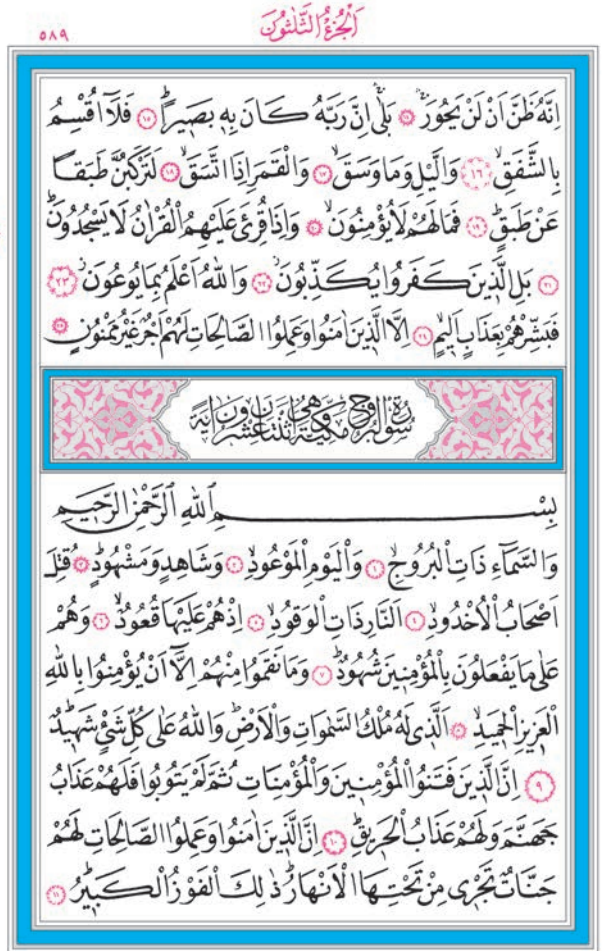 اَلْجُزْءُ الثَّلٰثُونَ
٥٨٩
اِنَّهُ ظَنَّ اَنْ لَنْ يَحُورَۚۛ ١٤ بَلٰىۚۛ اِنَّ رَبَّهُ كَانَ بِه۪ بَص۪يراًۜ ١٥ فَلَٓا اُقْسِمُ
بِالشَّفَقِۙ ١٦ وَالَّيْلِ وَمَا وَسَقَۙ ١٧ وَالْقَمَرِ اِذَا اتَّسَقَۙ ١٨ لَتَرْكَبُنَّ طَبَقاً
عَنْ طَبَقٍۜ ١٩ فَمَا لَهُمْ لَا يُؤْمِنُونَۙ ٢٠ وَاِذَا قُرِئَ عَلَيْهِمُ الْقُرْاٰنُ لَا يَسْجُدُونَۜ
٢١ بَلِ الَّذ۪ينَ كَفَرُوا يُكَذِّبُونَۘ ٢٢ وَاللّٰهُ اَعْلَمُ بِمَا يُوعُونَۘ ٢٣
فَبَشِّرْهُمْ بِعَذَابٍ اَل۪يمٍۙ ٢٤ اِلَّا الَّذ۪ينَ اٰمَنُوا وَعَمِلُوا الصَّالِحَاتِ لَهُمْ اَجْرٌ غَيْرُ مَمْنُونٍ ٢٥
سُورَةُ الْبُرُوجِ مَكِّيَّةٌ وَهِيَ اثْنَتَانِ وَعِشْرُونَ اٰيَةً
بِسْمِ اللّٰهِ الرَّحْمٰنِ الرَّح۪يمِ
وَالسَّمَٓاءِ ذَاتِ الْبُرُوجِۙ ١ وَالْيَوْمِ الْمَوْعُودِۙ ٢ وَشَاهِدٍ وَمَشْهُودٍۜ ٣ قُتِلَ
اَصْحَابُ الْاُخْدُودِۙ ٤ اَلنَّارِ ذَاتِ الْوَقُودِۙ ٥ اِذْ هُمْ عَلَيْهَا قُعُودٌۙ ٦ وَهُمْ
عَلٰى مَا يَفْعَلُونَ بِالْمُؤْمِن۪ينَ شُهُودٌۜ ٧ وَمَا نَقَمُوا مِنْهُمْ اِلَّٓا اَنْ يُؤْمِنُوا بِاللّٰهِ
الْعَز۪يزِ الْحَم۪يدِۙ ٨ اَلَّذ۪ي لَهُ مُلْكُ السَّمٰوَاتِ وَالْاَرْضِۜ وَاللّٰهُ عَلٰى كُلِّ شَيْءٍ شَه۪يدٌۜ
٩ اِنَّ الَّذ۪ينَ فَتَنُوا الْمُؤْمِن۪ينَ وَالْمُؤْمِنَاتِ ثُمَّ لَمْ يَتُوبُوا فَلَهُمْ عَذَابُ
جَهَنَّمَ وَلَهُمْ عَذَابُ الْحَر۪يقِۜ ١٠ اِنَّ الَّذ۪ينَ اٰمَنُوا وَعَمِلُوا الصَّالِحَاتِ لَهُمْ
جَنَّاتٌ تَجْر۪ي مِنْ تَحْتِهَا الْاَنْهَارُۜ ذٰلِكَ الْفَوْزُ الْكَب۪يرُۜ ١١